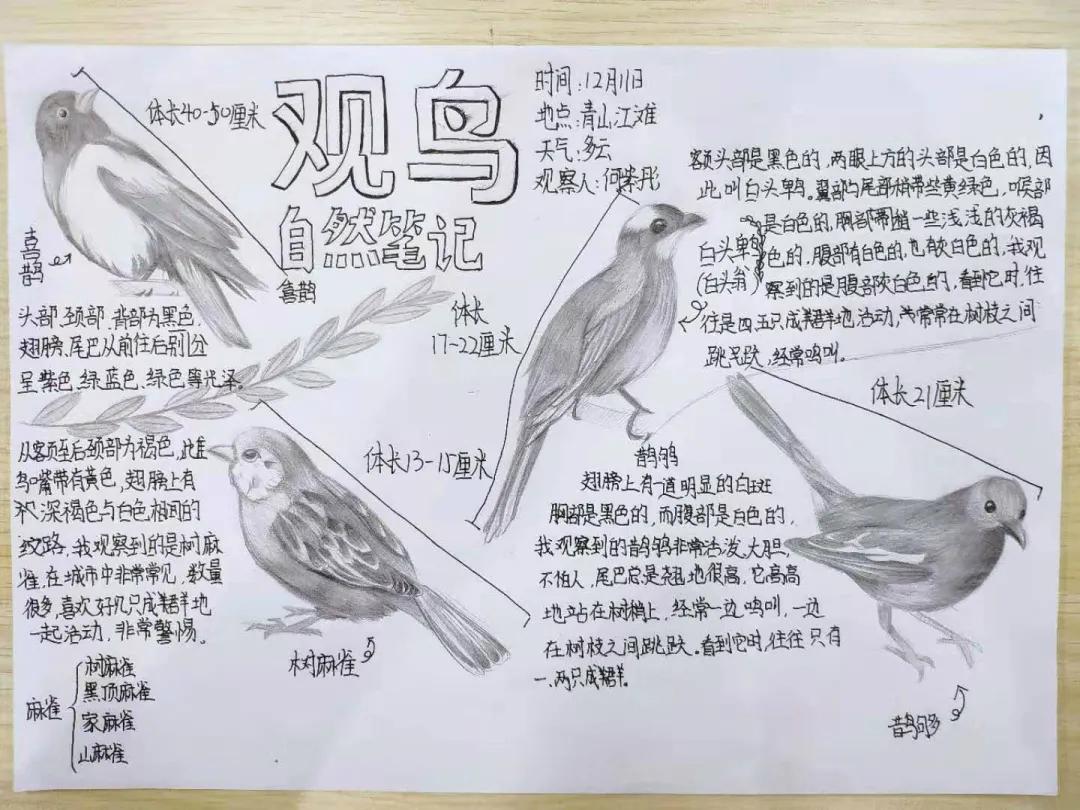 观鸟
自然笔记
时间:12月11日
地点:青山江滩
天气:多云
观察人:何紫彤
体长40-50厘米
喜鹊
喜鹊
头部、颈部、背部为黑色,
翅膀、尾巴从前往后别分
呈紫色、绿蓝色、绿色等光泽。
体长
17-22厘米
额头部是黑色的,两眼上方的头部是白色的,因
此叫白头鹎。翼部与尾部稍带些黄绿色,喉部
是白色的,胸部带着一些浅浅的灰褐
色的,腹部有白色的,也有灰白色的,我观
察到的是腹部灰白色的,看到它时,往
往是四、五只成群地活动,常常在树枝之间
跳跃,经常鸣叫。
白头鹎
(白头翁)
体长21厘米
从额顶至后颈部为褐色,此
鸟嘴带有黄色,翅膀上有
深褐色与白色相间的
纹路,我观察到的是树麻
雀,在城市中非常常见,数量
很多,喜欢好几只成群地
一起活动,非常警惕。
体长13-15厘米
树麻雀
麻雀
树麻雀
黑顶麻雀
家麻雀
山麻雀
鹊鸲
翅膀上有一道明显的白斑
胸部是黑色的,而腹部是白色的,
我观察到的鹊鸲非常活泼、大胆,
不怕人,尾巴总是翘地很高,它高高
地站在树梢上,经常一边鸣叫,一边
在树枝之间跳跃。看到它时,往往只有
一、两只成群。